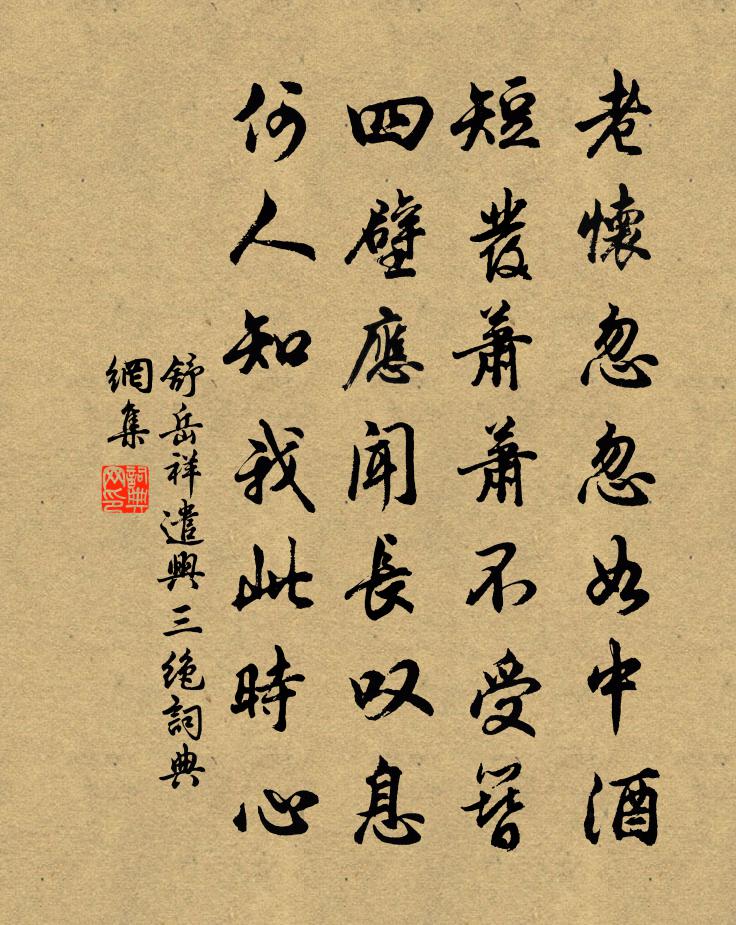 老懷忽忽如中酒
短發蕭蕭不受簪
四壁應聞長叹息
何人知我此時心
舒岳祥遣興三絕詞典
網集
詞典網印